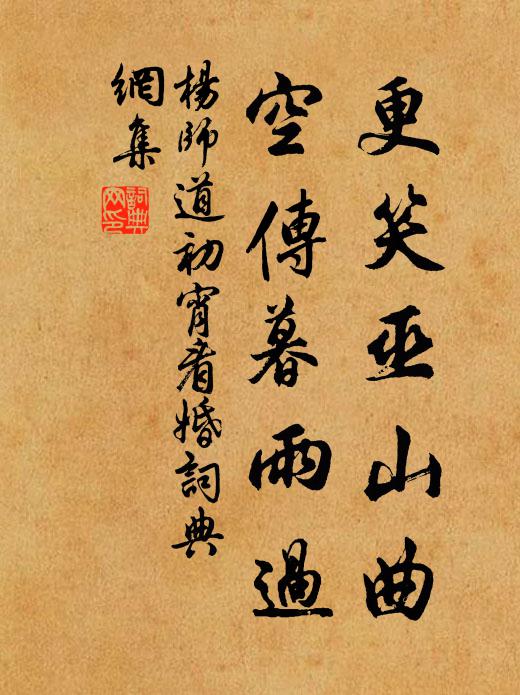 更笑巫山曲
空傳暮雨過
楊師道初宵看婚詞典
網集
詞典網印